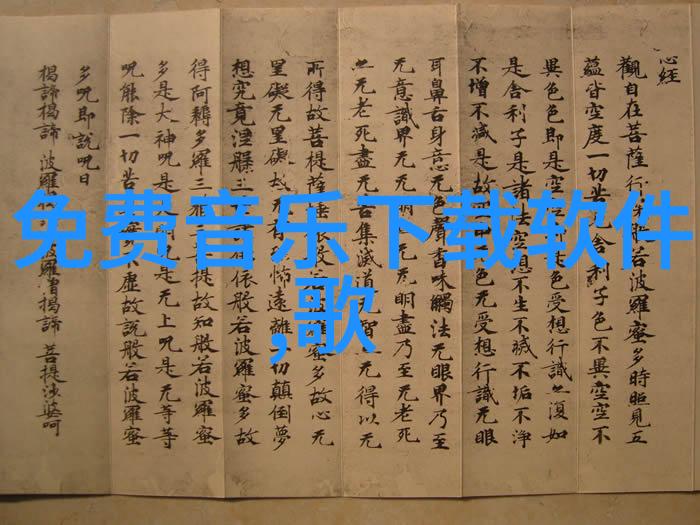 心經
觀自在菩薩行若波羅蜜多時照見五
蘊皆空度一切苦舍利子色不異空空不
異色色即是空色受想行識亦復如
是舍利子是諸法空想不生不滅不垢不淨
不增不減是故色无受想行識无眼
耳鼻舌身意无色聲香味觸法无眼界乃至
无意識界无无明无明盡乃至无老死
亦无老死盡无苦集滅道无智无得以无
所得故菩提薩埵依般若波羅蜜多故心无
罣礙无罣礙故无怖遠離切顛倒夢
想究竟涅槃三依般若波羅蜜多故
得阿耨多羅三菩提故知般若波羅蜜
多是大神呪是呪是无上呪是无等等
呪能除一切苦不虛故說般若波羅蜜
多呪即說呪曰
揭諦揭諦 波羅 波羅僧揭諦 菩提沙婆呵
免费音乐下载软件
,歌